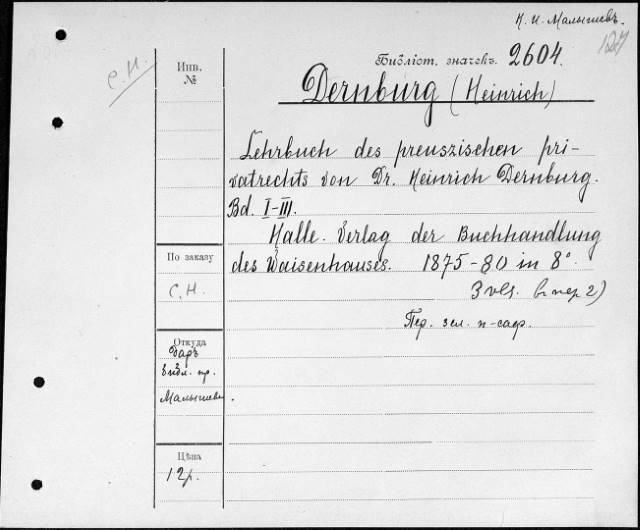 К. И. Малышевъ.
127
С. Н.
Инв.
№
Библіот. значекъ. 2604.
Dernburg (Heinrich)
Lehrbuch des preuszischen pri-
vatrechts von Dr. Heinrich Dernburg.
Bd. I-III.
Halle. Verlag der Buchhandlung
des Waisenhauses. 1875-80 in 8°.
3 vls. (в пер 2)
Пер. зел. п-саф.
По заказу
С. Н.
Откуда
Даръ
библ. пр.
Малышева.
Цѣна
12 р.